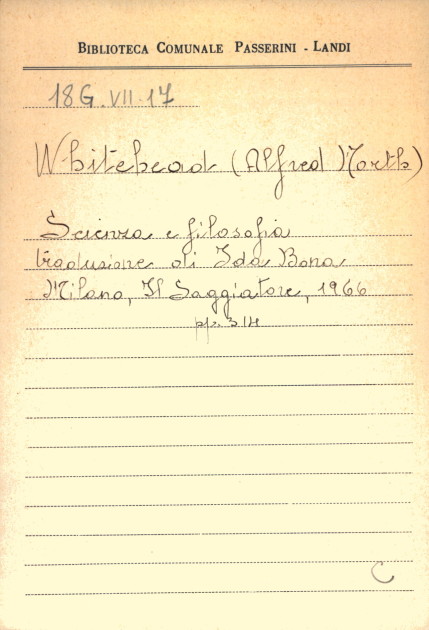 BIBLIOTECA COMUNALE PASSERINI - LANDI
18G.VII.17
Whitehead (Alfred North)
Scienza e filosofia
traduzione di Ida Bona
Milano, Il Saggiatore, 1966
pp. 314
C